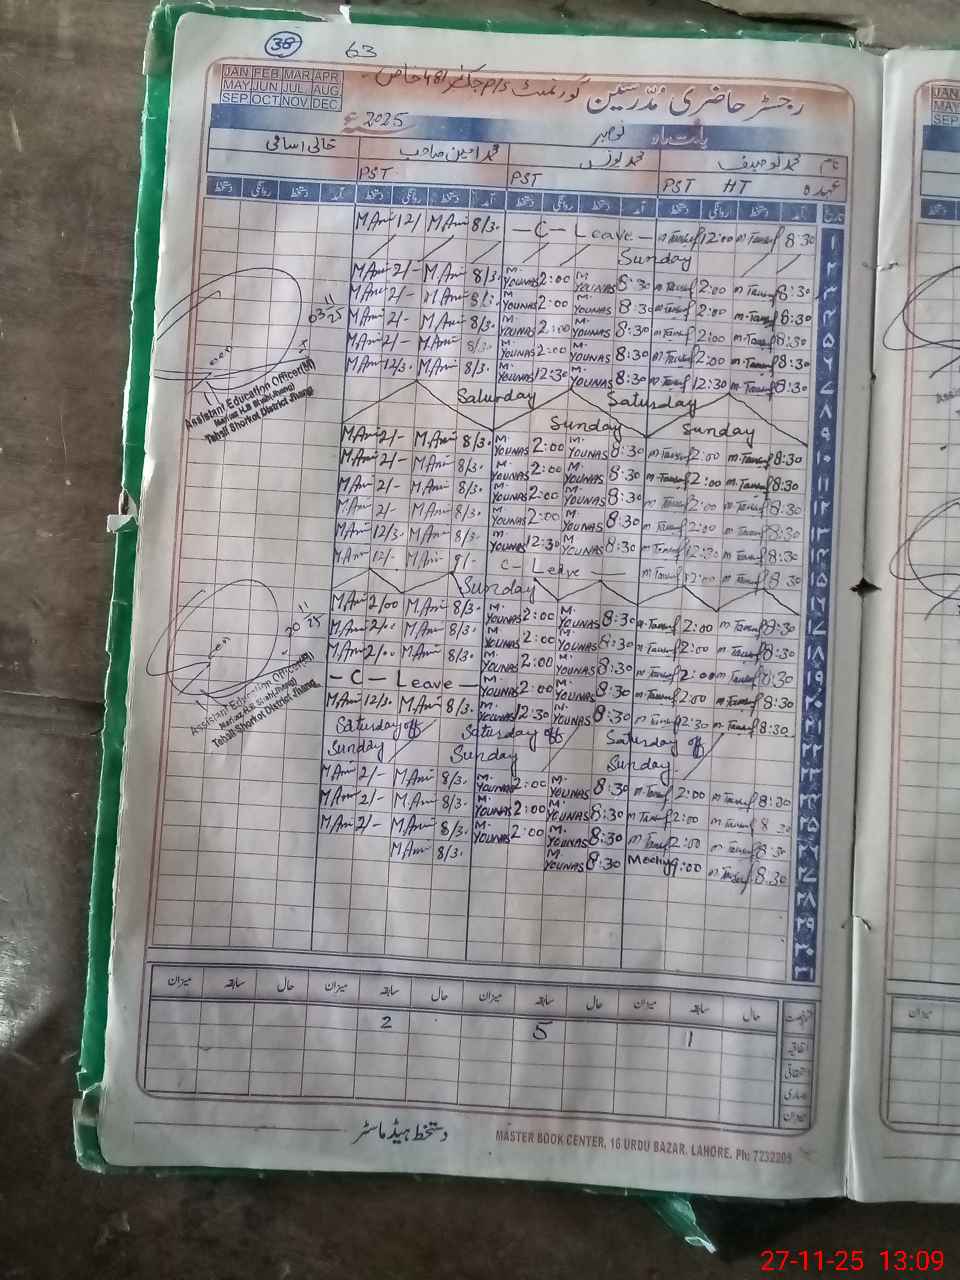 38 63
JAN FEB MAR APR
MAY JUN JUL AUG
SEP OCT NOV DEC
رجسٹر حاضری مدرسین گورنمنٹ P/S
بابت ماہ نومبر سنہ 2025ء
نام محمد توصیف محمد یونس محمد امین صاحب خالی اسامی
عہدہ PST HT PST PST
تاریخ آمد دستخط روانگی دستخط آمد دستخط روانگی دستخط آمد دستخط روانگی دستخط آمد دستخط روانگی دستخط
M.Amin 12/ M.Amin 8/30 - C - Leave - m Tausif 12:00 m Tausif 8:30 ۱
Sunday ۲
M.Amin 2/- M.Amin 8/30 M.YOUNAS 2:00 M.YOUNAS 8:30 m Tausif 2:00 m Tausif 8:30 ۳
M.Amin 2/- M.Amin 8/30 M.YOUNAS 2:00 M.YOUNAS 8:30 m Tausif 2:00 m Tausif 8:30 ۴
M.Amin 2/- M.Amin 8/30 M.YOUNAS 2:00 M.YOUNAS 8:30 m Tausif 2:00 m Tausif 8:30 ۵
M.Amin 2/- M.Amin 8/30 M.YOUNAS 2:00 M.YOUNAS 8:30 m Tausif 2:00 m Tausif 8:30 ۶
M.Amin 12/30 M.Amin 8/30 M.YOUNAS 12:30 M.YOUNAS 8:30 m Tausif 12:30 m Tausif 8:30 ۷
Saturday Saturday ۸
Sunday Sunday ۹
M.Amin 2/- M.Amin 8/30 M.YOUNAS 2:00 M.YOUNAS 8:30 m Tausif 2:00 m Tausif 8:30 ۱۰
M.Amin 2/- M.Amin 8/30 M.YOUNAS 2:00 M.YOUNAS 8:30 m Tausif 2:00 m Tausif 8:30 ۱۱
M.Amin 2/- M.Amin 8/30 M.YOUNAS 2:00 M.YOUNAS 8:30 m Tausif 2:00 m Tausif 8:30 ۱۲
M.Amin 2/- M.Amin 8/30 M.YOUNAS 2:00 M.YOUNAS 8:30 m Tausif 2:00 m Tausif 8:30 ۱۳
M.Amin 12/30 M.Amin 8/30 M.YOUNAS 12:30 M.YOUNAS 8:30 m Tausif 12:30 m Tausif 8:30 ۱۴
M.Amin 12/- M.Amin 9/- C - Leave m Tausif 12:00 m Tausif 8:30 ۱۵
Sunday ۱۶
M.Amin 2/00 M.Amin 8/30 M.YOUNAS 2:00 M.YOUNAS 8:30 m Tausif 2:00 m Tausif 8:30 ۱۷
M.Amin 2/00 M.Amin 8/30 M.YOUNAS 2:00 M.YOUNAS 8:30 m Tausif 2:00 m Tausif 8:30 ۱۸
M.Amin 2/00 M.Amin 8/30 M.YOUNAS 2:00 M.YOUNAS 8:30 m Tausif 2:00 m Tausif 8:30 ۱۹
- C - Leave - M.YOUNAS 2:00 M.YOUNAS 8:30 m Tausif 2:00 m Tausif 8:30 ۲۰
M.Amin 12/30 M.Amin 8/30 M.YOUNAS 12:30 M.YOUNAS 8:30 m Tausif 12:30 m Tausif 8:30 ۲۱
Saturday off Saturday off Saturday off ۲۲
Sunday Sunday Sunday ۲۳
M.Amin 2/- M.Amin 8/30 M.YOUNAS 2:00 M.YOUNAS 8:30 m Tausif 2:00 m Tausif 8:30 ۲۴
M.Amin 2/- M.Amin 8/30 M.YOUNAS 2:00 M.YOUNAS 8:30 m Tausif 2:00 m Tausif 8:30 ۲۵
M.Amin 2/- M.Amin 8/30 M.YOUNAS 2:00 M.YOUNAS 8:30 m Tausif 2:00 m Tausif 8:30 ۲۶
M.Amin 8/30 M.YOUNAS 8:30 Meeting 9:00 m Tausif 8:30 ۲۷
۲۸
۲۹
۳۰
۳۱
03/11/25
Assistant Education Officer(M)
Markaz H.B Shah(Jhang)
Tehsil Shorkot District Jhang
20/11/25
Assistant Education Officer(M)
Markaz H.B Shah(Jhang)
Tehsil Shorkot District Jhang
حال سابقہ میزان حال سابقہ میزان حال سابقہ میزان حال سابقہ میزان
اتفاقیہ 1 5 2
بیماری
میزان
دستخط ہیڈ ماسٹر
MASTER BOOK CENTER, 16 URDU BAZAR, LAHORE. Ph: 7232205
JAN
MAY
SEP
میزان
27-11-25 13:09